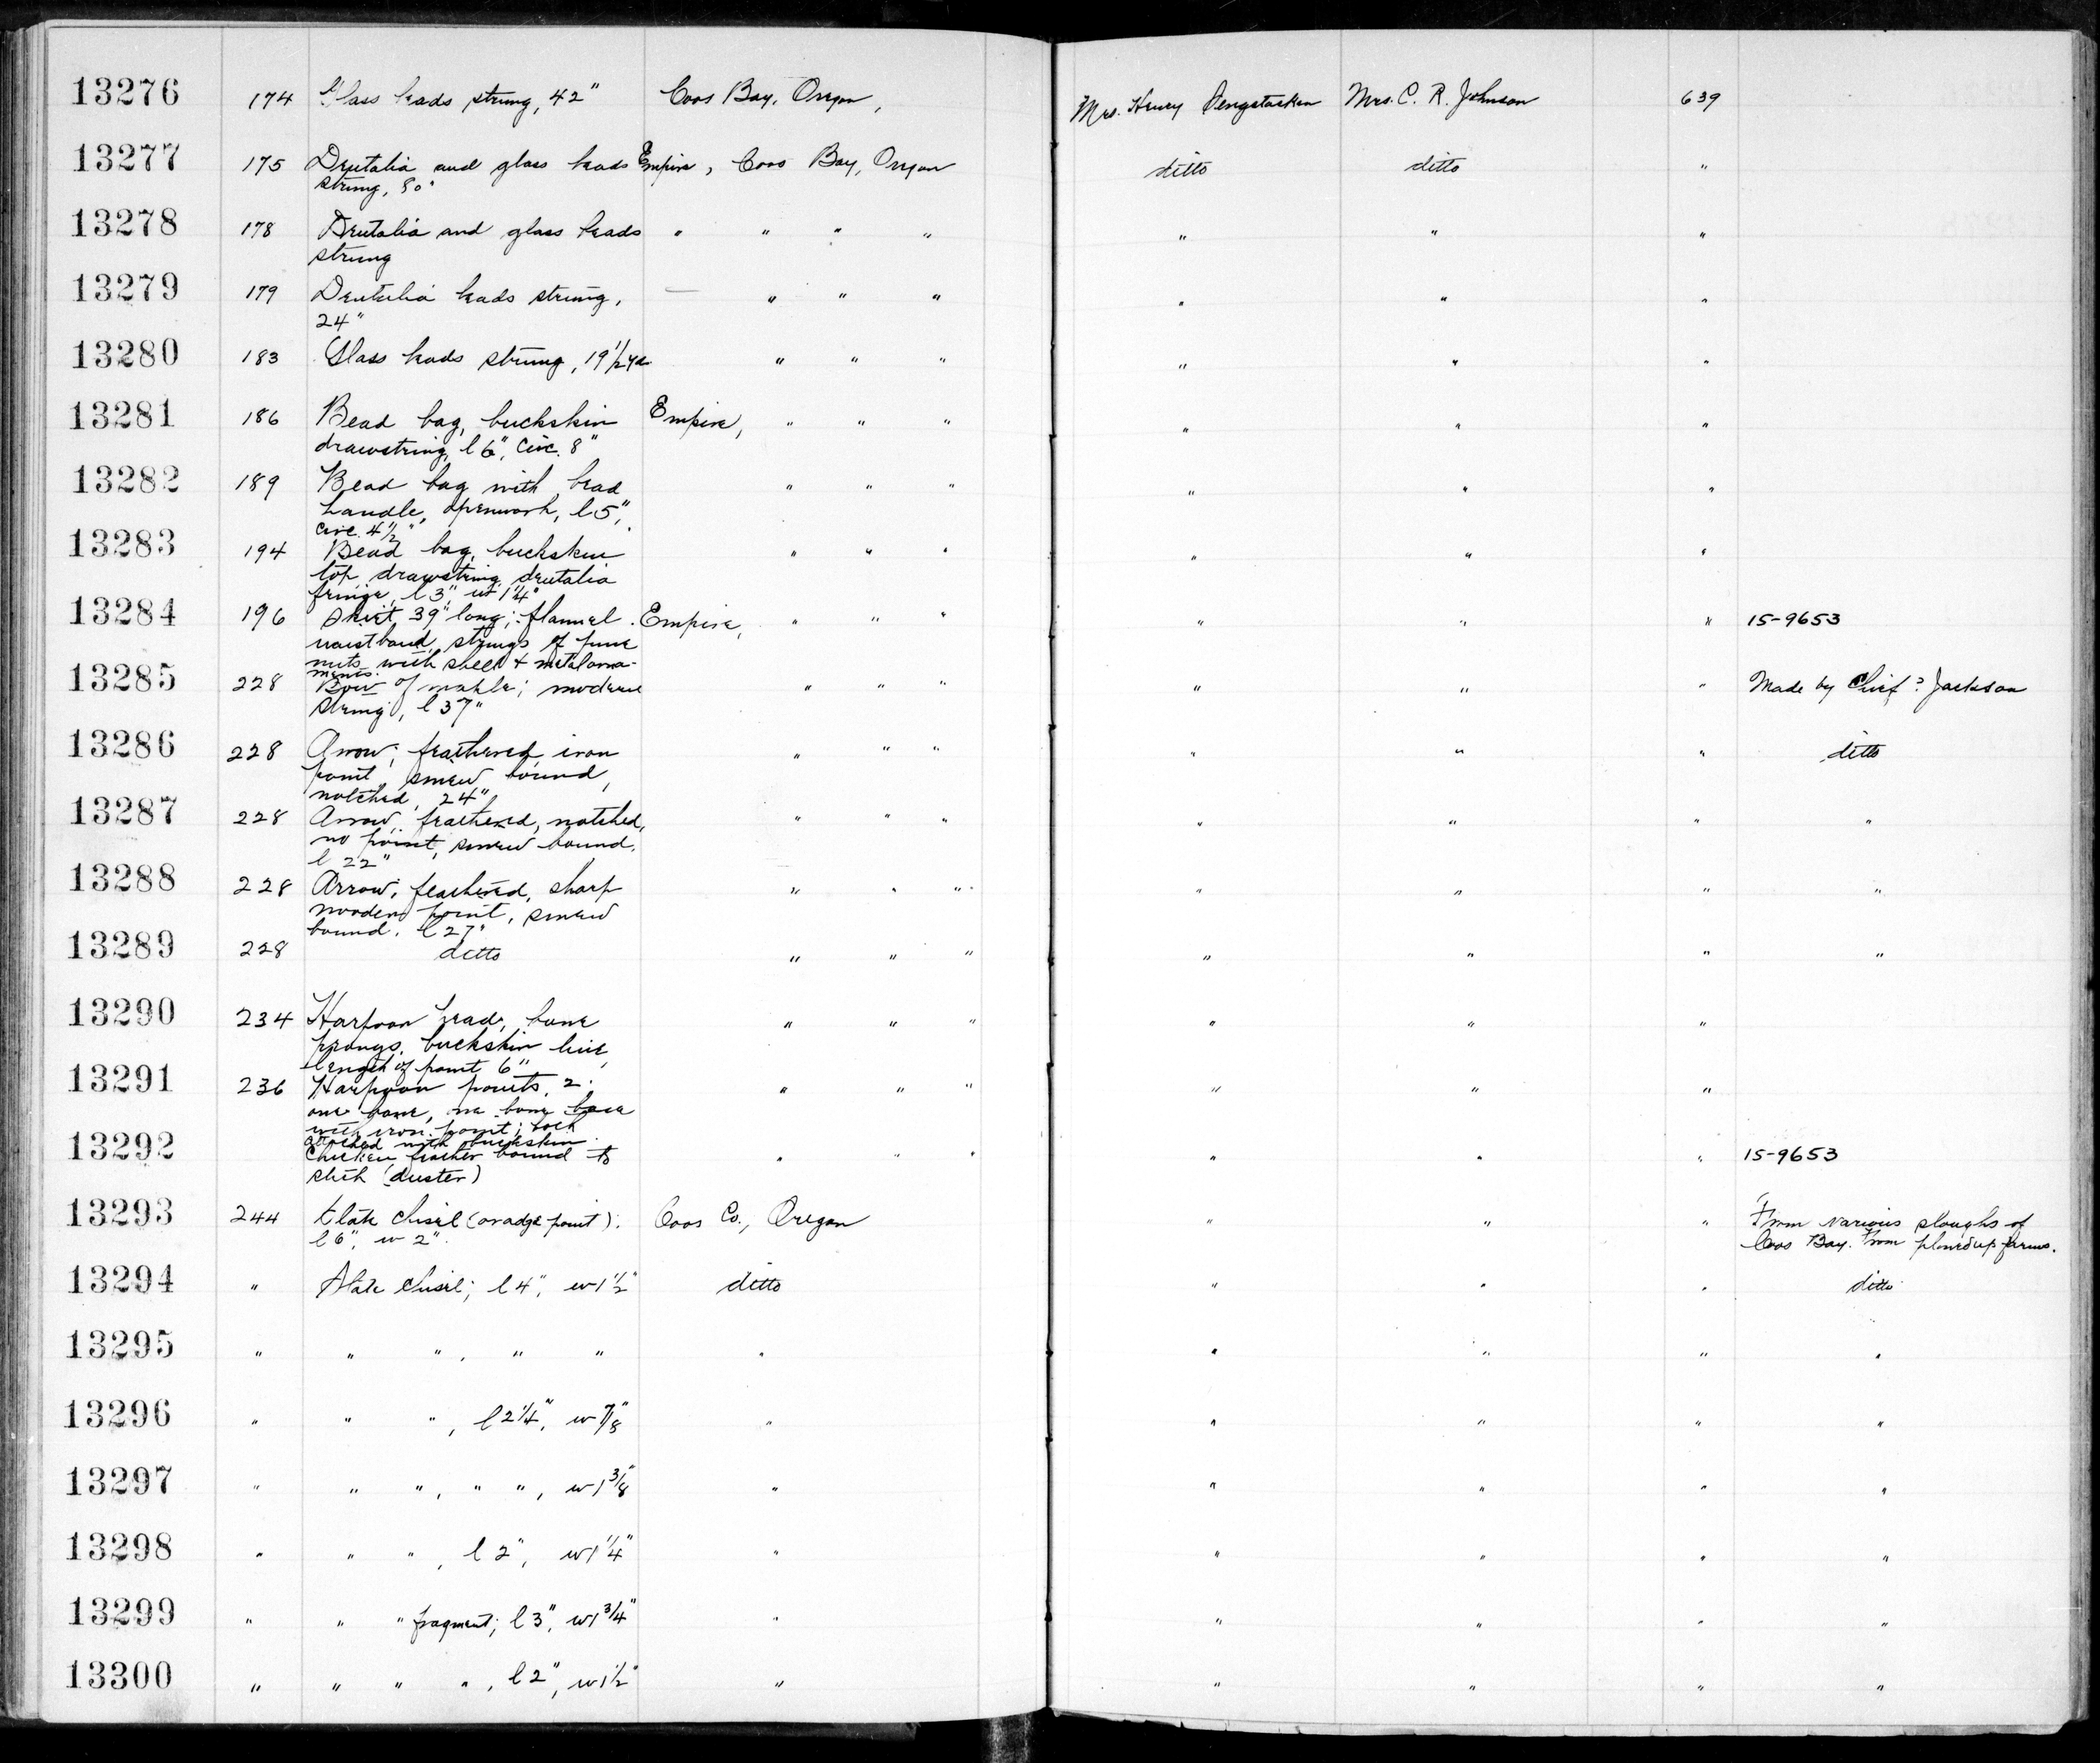 13276 174 Glass beads strung, 42" Coos Bay, Oregon, Mrs. Henry Sengstacken Mrs. C. R. Johnson 639
13277 175 Dentalia and glass beads Empire, Coos Bay, Oregon ditto ditto "
strung, 80"
13278 178 Dentalia and glass beads " " " " " " "
strung
13279 179 Dentalia beads strung, — " " " " " "
24"
13280 183 Glass beads strung, 19 1/2 yds " " " " " "
13281 186 Bead bag, buckskin Empire, " " " " " "
drawstring, l 6", circ. 8"
13282 189 Bead bag with bead " " " " " "
handle, openwork, l 5",
circ. 4 1/2"
13283 194 Bead bag, buckskin " " " " " "
top, drawstring, dentalia
fringe, l 3", w 1 1/4"
13284 196 Skirt, 39" long; flannel Empire, " " " " " " 15-9653
waistband, strings of pine
nuts with shell & metal orna-
ments.
13285 228 Bow of maple; modern " " " " " " Made by Chief? Jackson
string, l 37"
13286 228 Arrow; feathered, iron " " " " " " ditto
point, sinew bound,
notched, 24"
13287 228 Arrow; feathered, notched, " " " " " " "
no point, sinew bound,
l 22"
13288 228 Arrow; feathered, sharp " " " " " " "
wooden point, sinew
bound. l 27"
13289 228 ditto " " " " " " "
13290 234 Harpoon head, bone " " " " " "
prongs, buckskin line,
length of point 6"
13291 236 Harpoon points, 2: " " " " " "
one bone, one bone base
with iron point; both
attached with buckskin.
13292 Chicken feather bound to " " " " " " 15-9653
stick (duster)
13293 244 Slate chisel (or adze point). Coos Co., Oregon " " " From various sloughs of
l 6", w 2". Coos Bay. From plowed up farms.
13294 " Slate chisel; l 4", w 1 1/2" ditto " " " ditto
13295 " " ", " " " " " " "
13296 " " ", l 2 1/4", w 7/8" " " " " "
13297 " " ", " ", w 1 3/8" " " " " "
13298 " " ", l 2", w 1 1/4" " " " " "
13299 " " " fragment; l 3", w 1 3/4" " " " " "
13300 " " " ", l 2", w 1 1/2" " " " " "